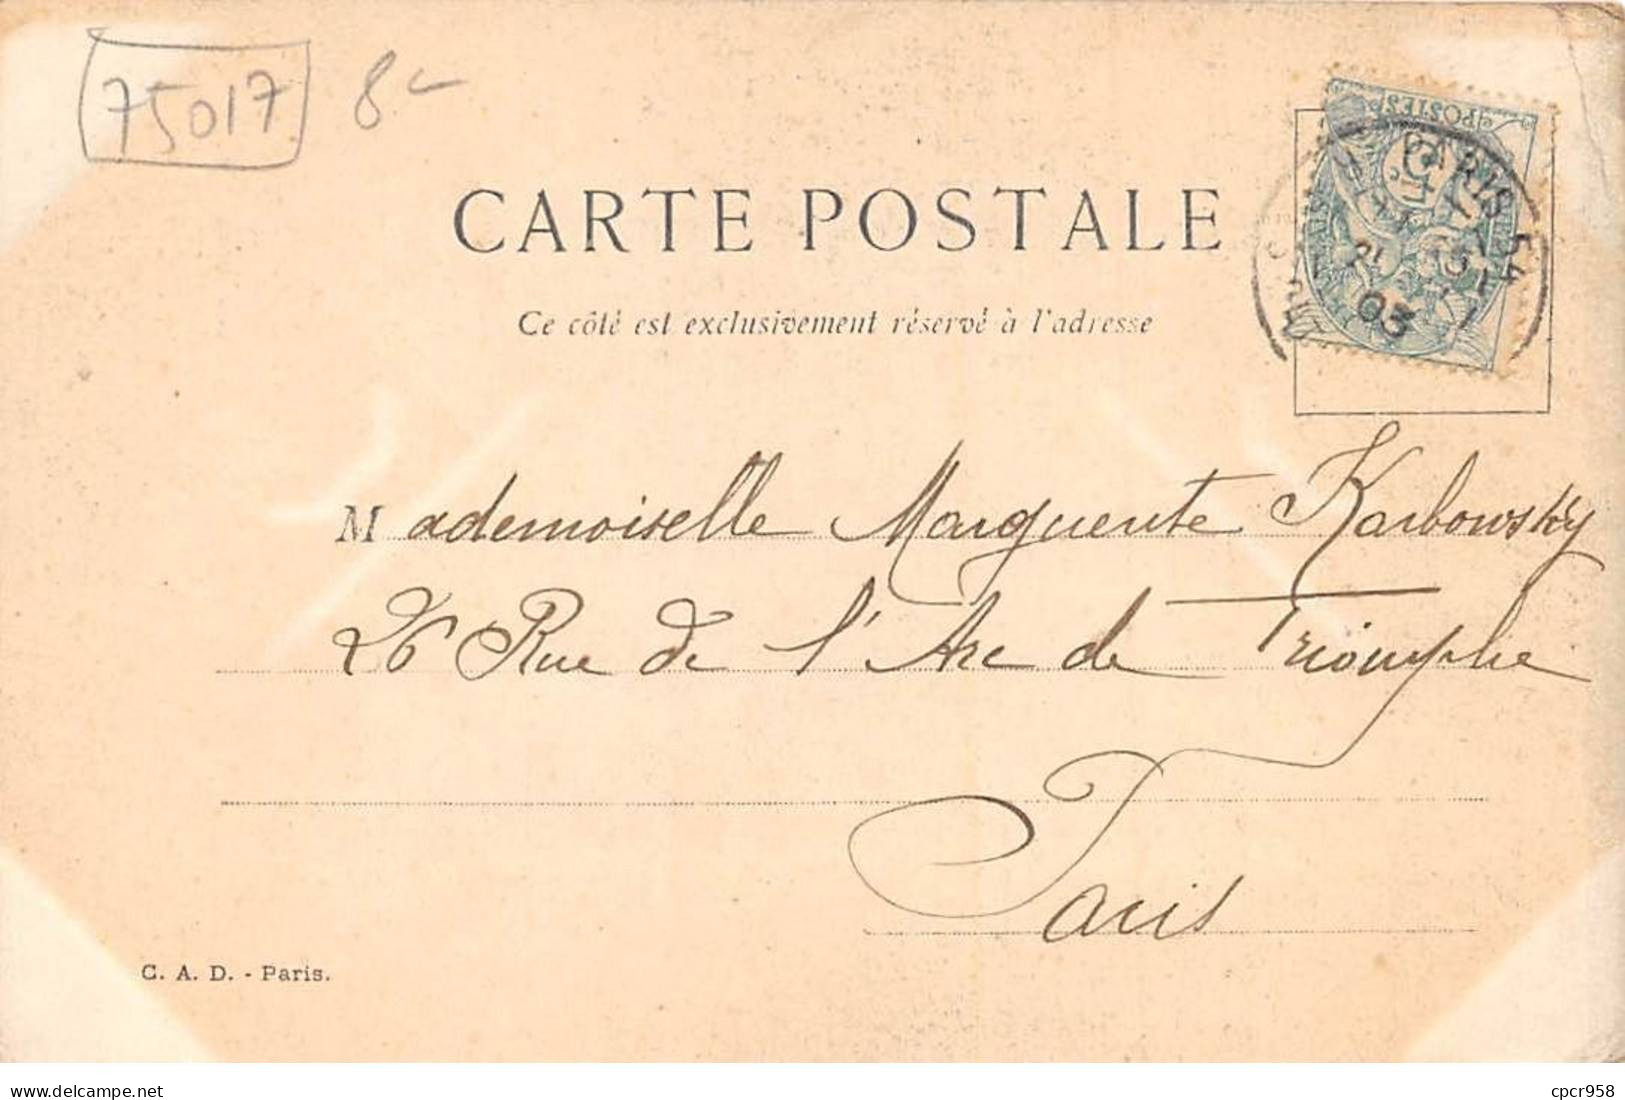 75017 8-
POSTES
PARIS 54
03
CARTE POSTALE
Ce côté est exclusivement réservé à l'adresse
Mademoiselle Marguerite Karbowsky
26 Rue de l'Arc de Triomphe
Paris
C. A. D. - Paris.
cpcr958